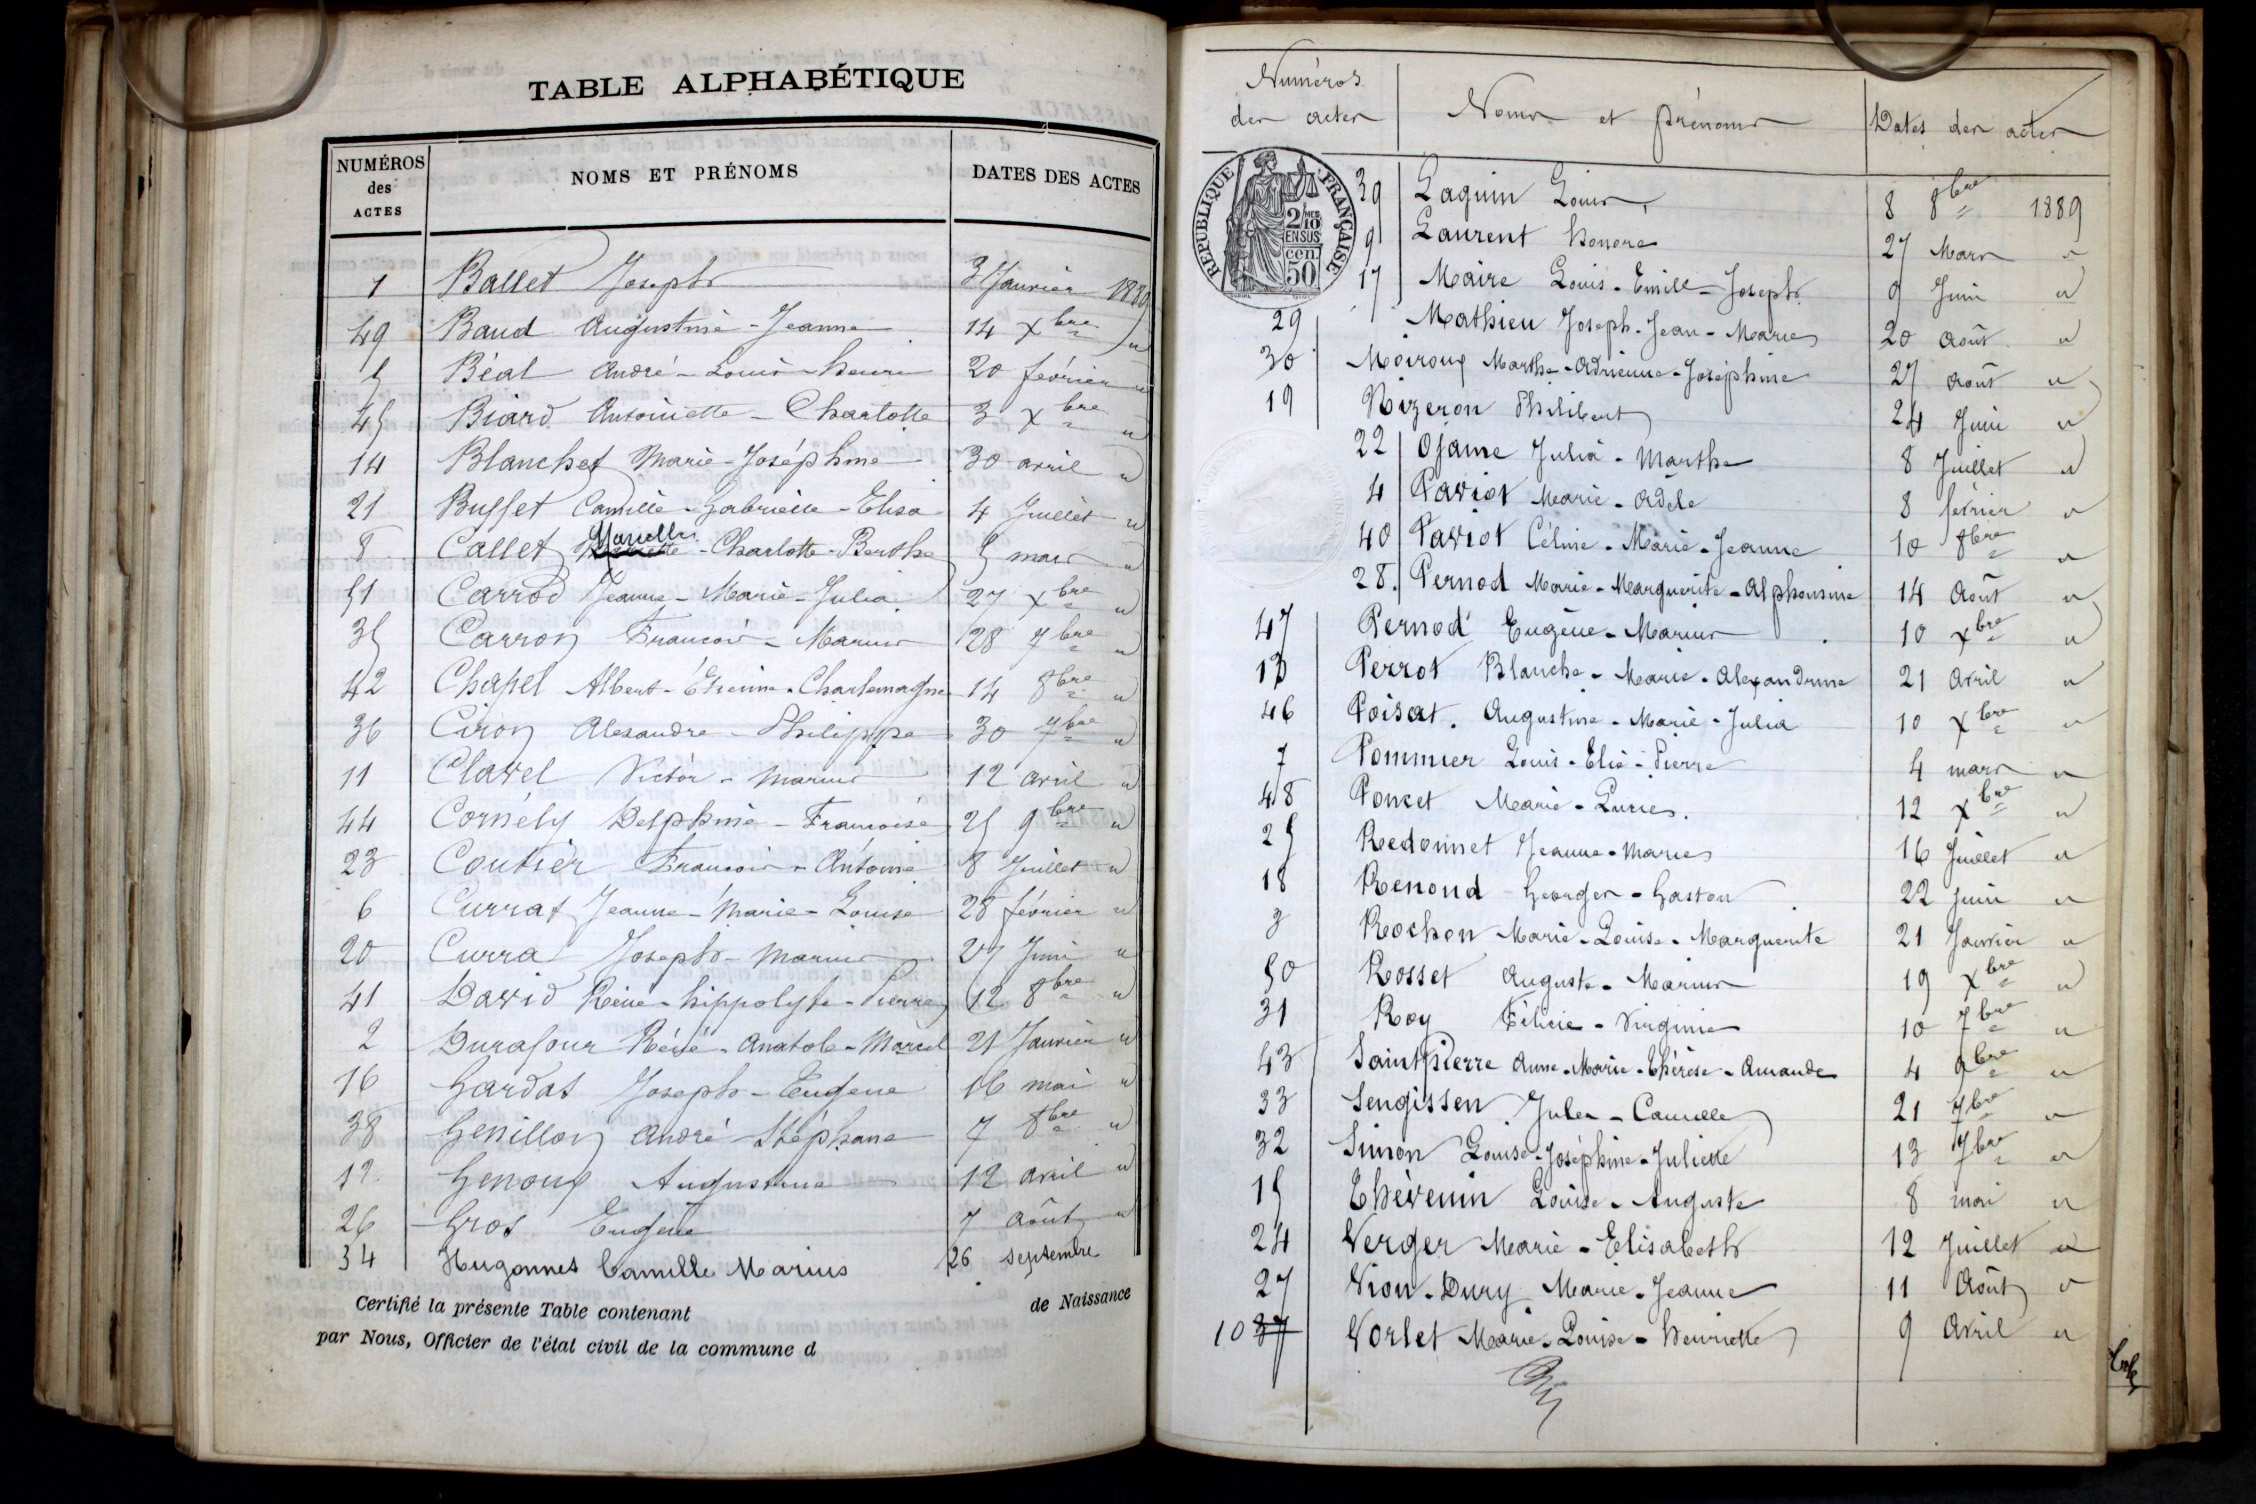 TABLE ALPHABÉTIQUE
NUMÉROS des ACTES NOMS ET PRÉNOMS DATES DES ACTES
1 Ballet Joseph 3 Janvier 1889
49 Baud Augustine-Jeanne 14 Xbre "
5 Béal André-Louis-henri 20 février "
45 Biard Antoinette-Charlotte 3 Xbre "
14 Blanchet Marie-Joséphine 30 avril "
21 Buffet Camille-Gabrielle-Elisa 4 Juillet "
8 Callet Marcelle-Charlotte-Berthe 5 mars "
51 Carrod Jeanne-Marie-Julia 27 Xbre "
35 Carron François-Marius 28 7bre "
42 Chapel Albert-Étienne-Charlemagne 14 8bre "
36 Ciron Alexandre-Philippe 30 7bre "
11 Clavel Victor-Marius 12 avril "
44 Cornély Delphine-Françoise 25 9bre "
23 Coutier François-Antoine 8 Juillet "
6 Currat Jeanne-Marie-Louise 28 février "
20 Curra Joseph-Marius 27 Juin "
41 David Réné-hippolyte-Pierre 12 8bre "
2 Durafour Réné-Anatole-Marcel 21 Janvier "
16 Gardat Joseph-Eugene 16 mai "
38 Genillon André-Stéphane 7 8bre "
12 Genoux Augustine 12 avril "
26 Gros Eugène 7 août "
34 Hugonnet Camille Marius 26 septembre
Certifié la présente Table contenant de Naissance
par Nous, Officier de l'état civil de la commune d
Numéros des actes Noms et prénoms Dates des actes
RÉPUBLIQUE FRANÇAISE
2/10 EN SUS
50 cen.
39 Laguin Louis 8 8bre 1889
9 Laurent honoré 27 Mars "
17 Maire Louis-Emille-Joseph 9 Juin "
29 Mathieu Joseph-Jean-Marie 20 août "
30 Moiroux Marthe-Adrienne-Joséphine 27 août "
19 Nizeron Philibert 24 Juin "
22 Ojame Julia-Marthe 8 Juillet "
4 Paviot Marie-Adèle 8 février "
40 Paviot Céline-Marie-Jeanne 10 8bre "
28 Pernod Marie-Marguerite-Alphonsine 14 Août "
47 Pernod Eugène-Marius 10 Xbre "
13 Perrot Blanche-Marie-Alexandrine 21 Avril "
46 Poisat Augustine-Marie-Julia 10 Xbre "
7 Pommier Louis-Elie-Pierre 4 mars "
48 Poncet Marie-Lucie 12 Xbre "
25 Redonnet Jeanne-Marie 16 Juillet "
18 Renoud Georges-Gaston 22 Juin "
3 Rochon Marie-Louise-Marguerite 21 Janvier "
50 Rosset Auguste-Marius 19 Xbre "
31 Roy Félicie-Virginie 10 7bre "
43 Saintpierre Anne-Marie-Thérèse-Amande 4 9bre "
33 Sengissen Jules-Camille 21 7bre "
32 Simon Louise-Joséphine-Juliette 13 7bre "
15 Thévenin Louise-Auguste 8 mai "
24 Verger Marie-Elisabeth 12 Juillet "
27 Vion-Dury Marie-Jeanne 11 Août "
10 37 Vorlet Marie-Louise-henriette 9 Avril "